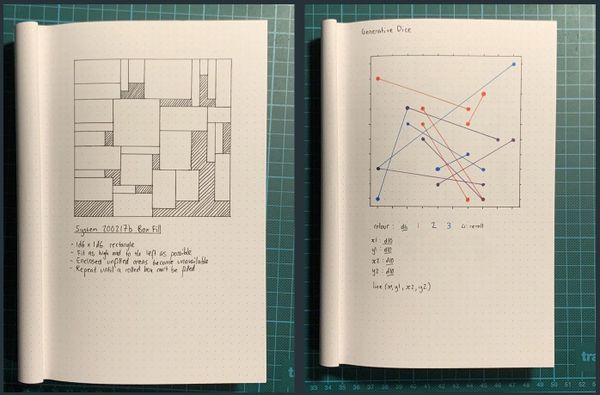 System 200217b Box Fill
- 1d6 x 1d6 rectangle
- Fit as high and to the left as possible
- Enclosed unfilled areas become unavailable
- Repeat until a rolled box can't be fitted
Generative Dice
colour : d6 1 2 3 4: reroll
x1 : d10
y1 : d10
x2 : d10
y2 : d10
line (x1, y1, x2, y2)
tra
33 34 35 36 37 38 39 40 41 42 43 44 45 46 47 48 49 50 51 52 53 54